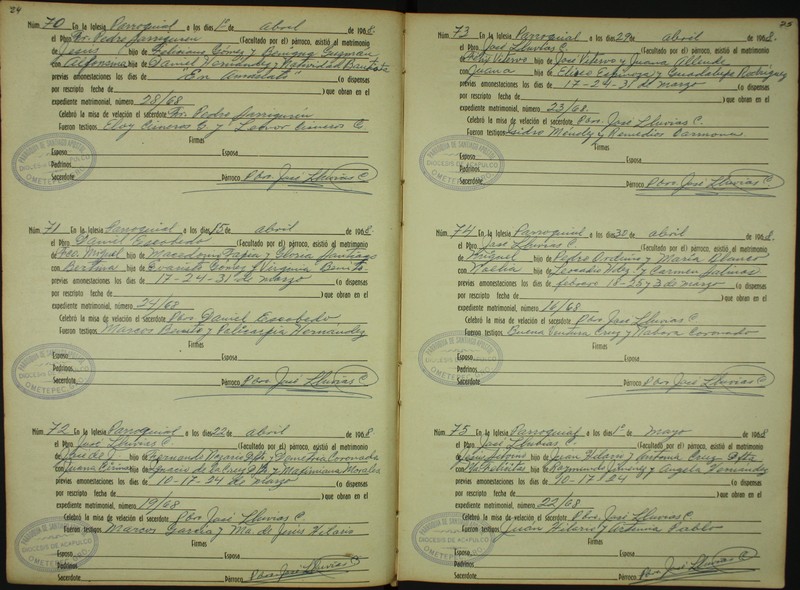 24
Núm. 70 En la Iglesia Parroquial a los días 1º de abril de 1968.
el Pbro. Fr. Pedro (Facultado por el) párroco, asistió al matrimonio
de Jesús hijo de Feliciano Gómez y Benigna Guzmán
con Alfonsina hija de Daniel Hernández y Natividad Bautista
previas amonestaciones los días de "En (o dispensas
por rescripto fecha de ) que obran en el
expediente matrimonial, número 28/68
Celebró la misa de velación el sacerdote Fr. Pedro
Fueron testigos Eloy Cisneros G. y Leonor Cisneros G.
Firmas
Esposo Esposa
Padrinos
Sacerdote Párroco Pbro. José Lluvias C
PARROQUIA DE SANTIAGO APOSTOL
DIOCESIS DE ACAPULCO
OMETEPEC, GRO.
Núm. 71 En la Iglesia Parroquial a los días 15 de abril de 1968.
el Pbro. Daniel Escobedo (Facultado por el) párroco, asistió al matrimonio
de Fco. Miguel hijo de Macedonio Tapia y Gloria Santiago
con Bertina hija de Evaristo Gómez y Virginia Benito
previas amonestaciones los días de 17-24-31 de marzo (o dispensas
por rescripto fecha de ) que obran en el
expediente matrimonial, número 24/68
Celebró la misa de velación el sacerdote Pbro Daniel Escobedo
Fueron testigos Marcos Benito y Policarpia Hernández
Firmas
Esposo Esposa
Padrinos
Sacerdote Párroco Pbro. José Lluvias C
PARROQUIA DE SANTIAGO APOSTOL
DIOCESIS DE ACAPULCO
OMETEPEC, GRO.
Núm. 72 En la Iglesia Parroquial a los días 22 de abril de 1968
el Pbro. José Lluvias C. (Facultado por el) párroco, asistió al matrimonio
de José de J. hijo de Fernando Nazario y Demetria Coronada
con Juana hija de Ignacio de la Cruz y Maximiana Morales
previas amonestaciones los días de 10-17-24 de marzo (o dispensas
por rescripto fecha de ) que obran en el
expediente matrimonial, número 19/68
Celebró la misa de velación el sacerdote Pbro. José Lluvias C.
Fueron testigos Marcos García y Ma. de Jesús Hilario
Firmas
Esposo Esposa
Padrinos
Sacerdote Párroco Pbro. José Lluvias C
PARROQUIA DE SANTIAGO APOSTOL
DIOCESIS DE ACAPULCO
OMETEPEC, GRO.
25
Núm. 73 En la Iglesia Parroquial a los días 29 de abril de 1968.
el Pbro. José Lluvias C. (Facultado por el) párroco, asistió al matrimonio
de Vitervo hijo de José Vitervo y Juana Allende
con Juana hija de Eliseo Espinoza y Guadalupe Rodríguez
previas amonestaciones los días de 17-24-31 de marzo (o dispensas
por rescripto fecha de ) que obran en el
expediente matrimonial, número 23/68.
Celebró la misa de velación el sacerdote Pbro. José Lluvias C.
Fueron testigos Isidro Méndez y Remedios Carmona
Firmas
Esposo Esposa
Padrinos
Sacerdote Párroco Pbro. José Lluvias C
PARROQUIA DE SANTIAGO APOSTOL
DIOCESIS DE ACAPULCO
OMETEPEC, GRO.
Núm. 74 En la Iglesia Parroquial a los días 30 de abril de 1968.
el Pbro. José Lluvias C. (Facultado por el) párroco, asistió al matrimonio
de hijo de Pedro Orduño y María Blanco
con hija de Leocadio Hdez. y Carmen Salinas
previas amonestaciones los días de febrero 18-25 y 3 de marzo (o dispensas
por rescripto fecha de ) que obran en el
expediente matrimonial, número 16/68
Celebró la misa de velación el sacerdote Pbro. José Lluvias C
Fueron testigos Buena Ventura Cruz y Coronado
Firmas
Esposo Esposa
Padrinos
Sacerdote Párroco Pbro. José Lluvias C
PARROQUIA DE SANTIAGO APOSTOL
DIOCESIS DE ACAPULCO
OMETEPEC, GRO.
Núm. 75 En la Iglesia Parroquial a los días 1º de mayo de 1968
el Pbro. José Lluvias C. (Facultado por el) párroco, asistió al matrimonio
de hijo de Juan Hilario y Antonia Cruz
con Ma. Felicitas hija de Raymundo Jiménez y Angela Hernández
previas amonestaciones los días de 10-17 y 24 (o dispensas
por rescripto fecha de ) que obran en el
expediente matrimonial, número 22/68
Celebró la misa de velación el sacerdote Pbro. José Lluvias C
Fueron testigos Juan Hilario y Pablo
Firmas
Esposo Esposa
Padrinos
Sacerdote Párroco Pbro José Lluvias C
PARROQUIA DE SANTIAGO APOSTOL
DIOCESIS DE ACAPULCO
OMETEPEC, GRO.